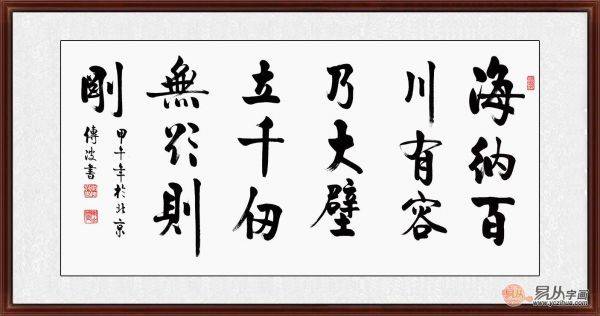 海納百
川有容
乃大壁
立千仞
無欲則
剛
甲午年於北京
傳波書
易从字画
www.yczihua.com